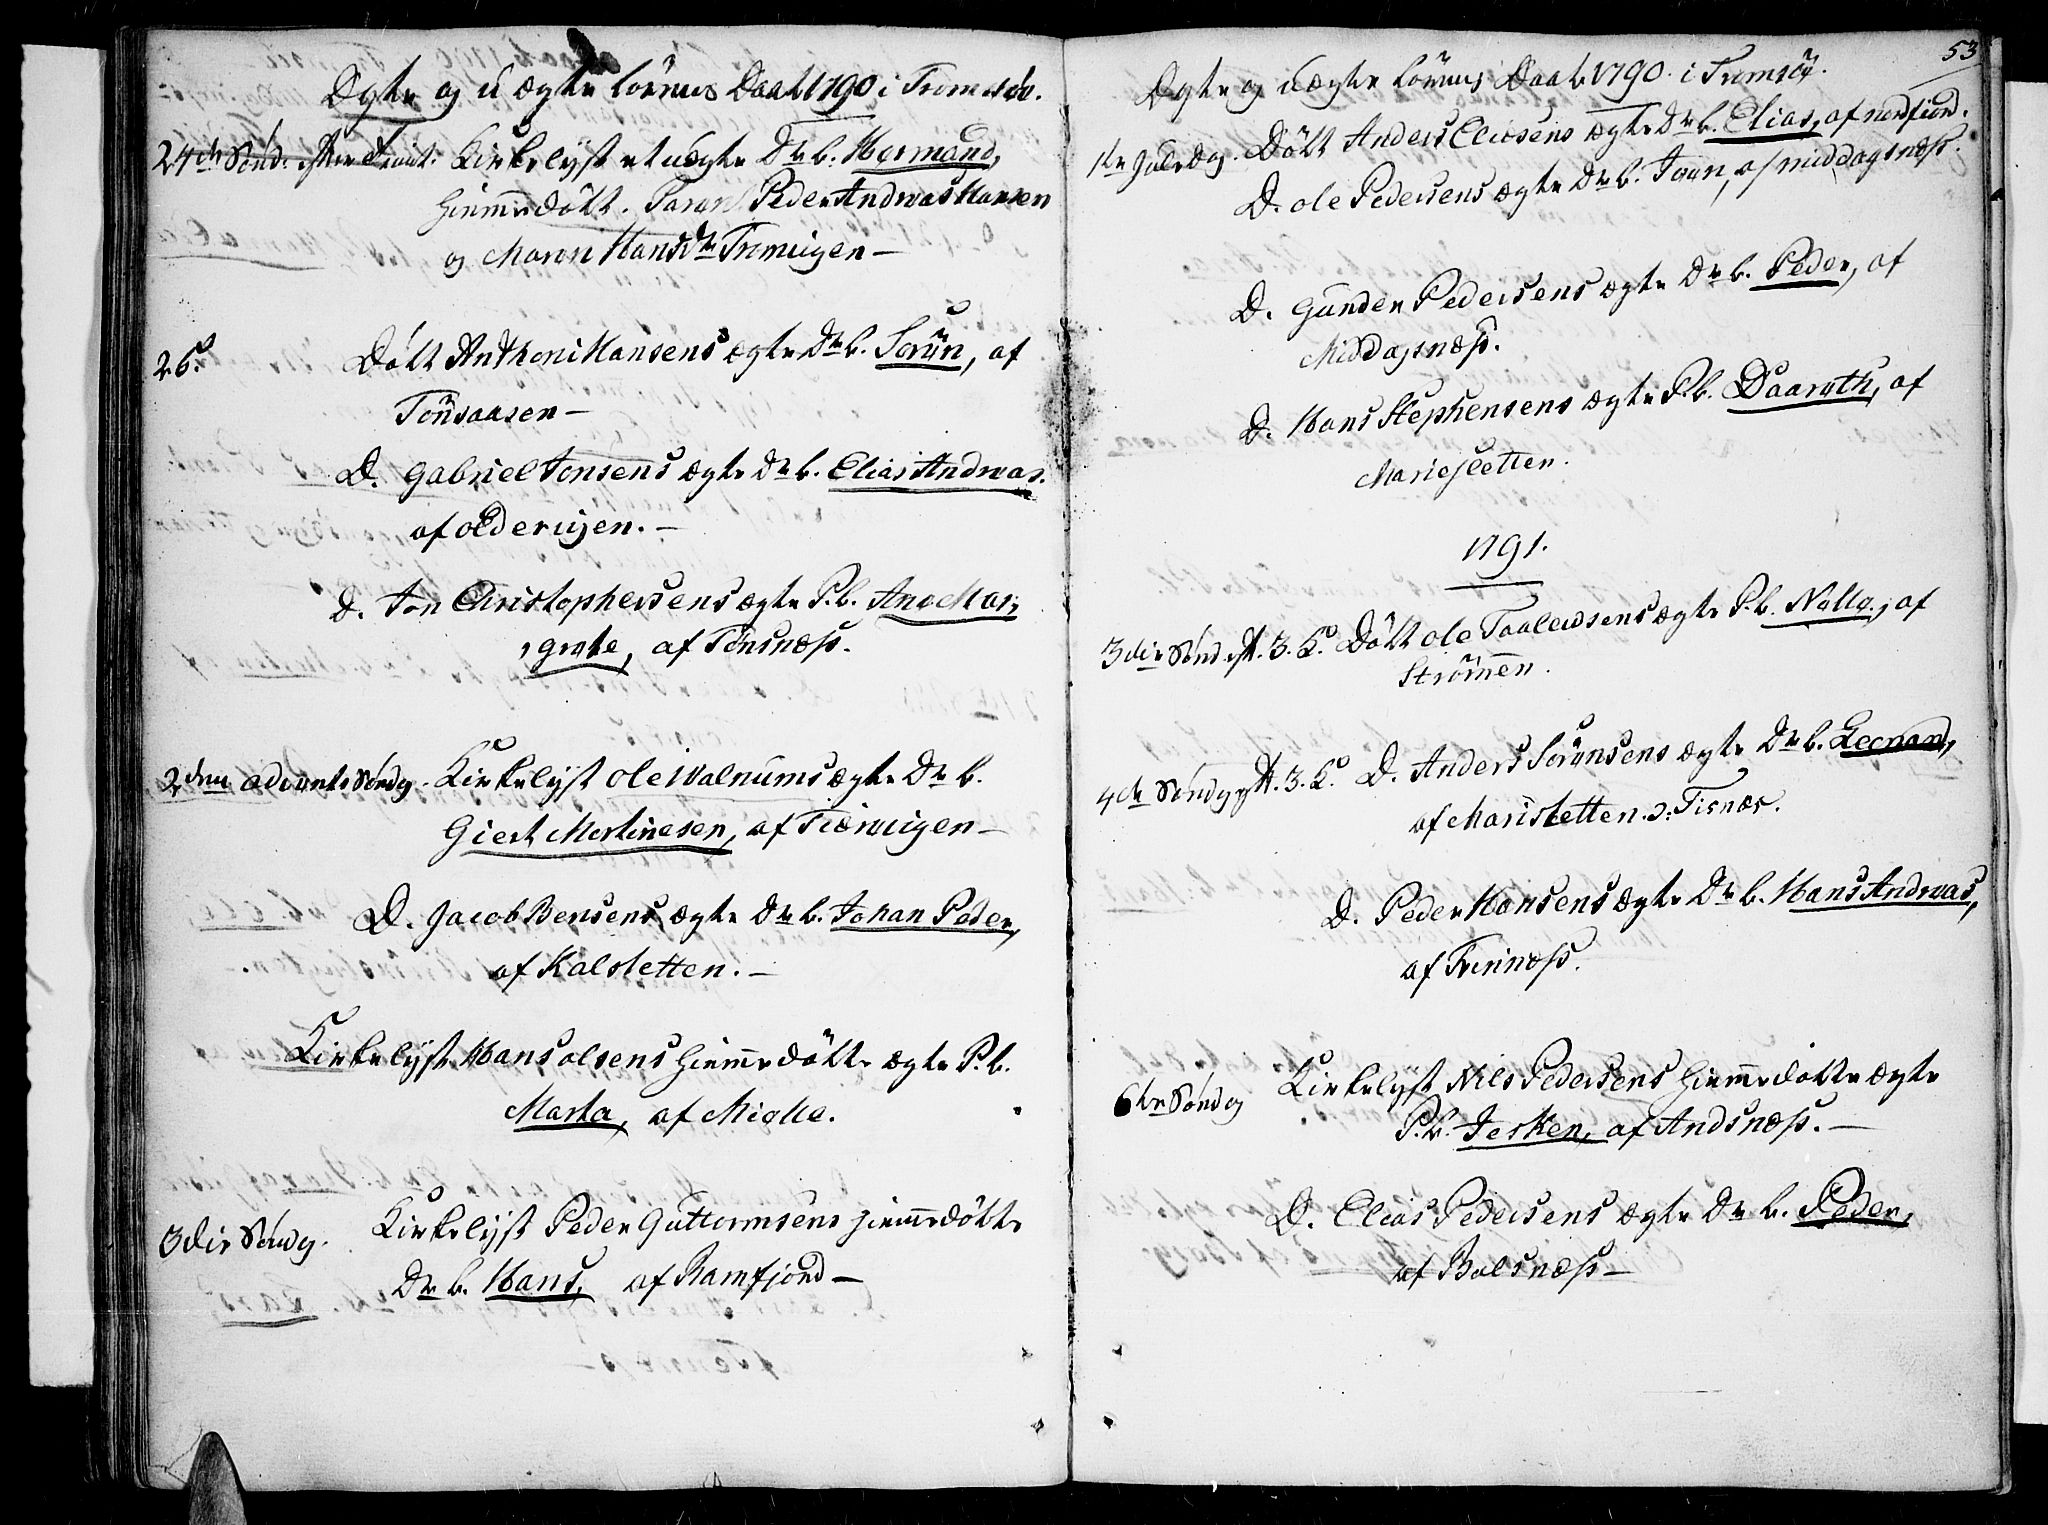 Ægte og uægte börnes Daab 1790 i Tromsöe.
24de Sönd. efter Trinit. Kirkelyst et uægte Dreb. Hermand,
hiemmedöbt. Foræl. Peder Andreas Hansen
og Maren Hansdtr Tromvigen —
26.
Döbt Anthoni Hansens ægte Dreb. Sörün, af
Tönsaasen —
D. Gabriel Jonsens ægte Dreb. Elias Andreas.
af Oldervigen. —
D. Jon Christophersens ægte P.b. Ane Mar-
grete, af Tönsnæss.
2den Advents Söndg. Kirkelyst Ole Walnums ægte Dreb.
Giert Mortinesen, af Tiærvigen —
D. Jacob Bensens ægte Dreb. Johan Peder,
af Kalsletten. —
Kirkelyst Hans Olsens hiemmedöbte ægte P.b.
Marta, af Mielle.
3die Söndg. Kirkelyst Peder Guttormsens hiemmedöbte
Dreb. Hans, af Ramfjord —
53
Ægte og uægte börnes Daab 1790. i Tromsöe.
1te Juledag. Döbt Anders Eliesens ægte Dreb. Elias, af nordfiord.
D. Ole Pedersens ægte Dreb. Joen, af middagsnæss.
D. Gunder Pedersens ægte Dreb. Peder, af
Middagsnæss.
D. Hans Stephensens ægte P.b. Daarath, af
Marisletten.
1791.
3die Sönd. eft. 3. K. Döbt Ole Taalevsens ægte P.b. Nella, af
Strömmen.
4de Söndg eft. 3. K. D. Anders Sörensens ægte Dreb. Leonard,
af Marisletten. ɔ: Tisnæs.
D. Peder Hansens ægte Dreb. Hans Andreas,
af Finnæss.
6te Söndg Kirkelyst Nils Pedersens hiemmedöbte ægte
P.b. Jesken, af Andsnæss. —
D. Elias Pedersens ægte Dreb. Peder,
af Balsnæss —